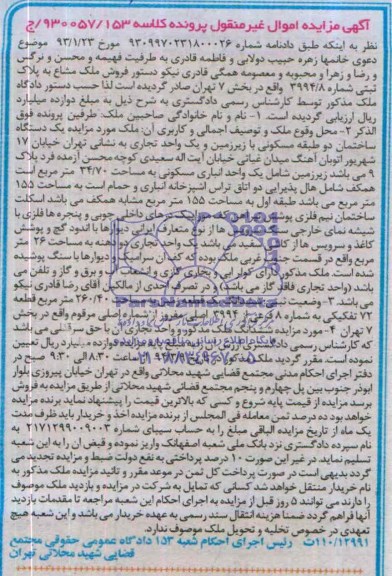 آگهی مزایده اموال غیرمنقول پرونده کلاسه ۹۳۰۰۵۷/۱۵۳/ج
نظر به اینکه طبق دادنامه شماره ۹۳۰۹۹۷۰۲۳۱۸۰۰۰۲۶ مورخ ۹۳/۱/۲۳ موضوع
دعوی خانمها زهره حبیب دولابی و فاطمه قادری به طرفیت فهیمه و محسن و نرگس
و رضا و زهرا و محبوبه و معصومه همگی قادری نیکو دستور فروش ملک مشاع به پلاک
ثبتی شماره ۳۹۹۴/۸ واقع در بخش ۷ تهران صادر گردیده است لذا حسب دستور دادگاه
ملک مذکور توسط کارشناس رسمی دادگستری به شرح ذیل به مبلغ دوازده میلیارد
ریال ارزیابی گردیده است. ۱- نام و نام خانوادگی صاحبین ملک: طرفین پرونده فوق
الذکر ۲- محل وقوع ملک و توصیف اجمالی و کاربری آن: ملک مورد مزایده یک دستگاه
ساختمان دو طبقه مسکونی با زیرزمین و یک واحد تجاری به نشانی تهران خیابان ۱۷
شهریور اتوبان آهنگ میدان غیاثی خیابان آیت اله سعیدی کوچه محسن آزمده فرد پلاک
۹ می باشد زیرزمین شامل یک واحد انباری مسکونی به مساحت ۳۴/۷۰ متر مربع است
همکف شامل هال پذیرایی دو اتاق تراس آشپزخانه انباری و حمام است به مساحت ۱۵۵
متر مربع می باشد طبقه اول به مساحت ۱۵۵ متر مربع مشابه همکف می باشد اسکلت
ساختمان نیم فلزی پوشش درهای داخلی چوبی و پنجره ها فلزی با
شیشه نمای خارجی از نوع متعارف ایرانی دیوارها با اندود گچ و پوشش
کاغذ و سرویس ها از کاشی سفید می باشد یک واحد تجاری دهنه به مساحت ۲۶ متر
مربع واقع در قسمت غربی ملک بوده که کف آن سرامیک دیوارها با سنگ پوشیده
شده است. ملک مذکور دارای کولر آبی و بخاری گازی و انشعاب آب و برق و گاز و تلفن می
باشد (واحد تجاری فاقد گاز می باشد) و در تصرف احدی از مالکین آقای رضا قادری نیکو
می باشد. ۳- وضعیت ۲۶۰/۴۰ متر مربع قطعه
۷۲ تفکیکی به شماره ۸ فرعی از ۳۹۹۴ اصلی مفروز از شماره اصلی مرقوم واقع در بخش
۷ تهران ۴- مورد مزایده ششدانگ ملک مذکور و واحد تجاری آن با حق سرقفلی می باشد
که کارشناس رسمی دادگستری میلیارد ریال تعیین
نموده است. مقرر گردید ملک ساعت ۸:۳۰ الی ۹:۳۰ صبح در
دفتر اجرای احکام مدنی مجتمع قضایی شهید محلاتی واقع در تهران خیابان پیروزی بلوار
ابوذر جنوب بین پل چهارم و پنجم مجتمع قضائی شهید محلاتی از طریق مزایده به فروش
برسد مزایده از قیمت پایه شروع و کسی که بالاترین قیمت را پیشنهاد نماید برنده مزایده
خواهد بود ده درصد ثمن معامله فی المجلس از برنده مزایده اخذ و خریدار باید ظرف مدت
یک ماه از تاریخ مزایده الباقی مبلغ را به حساب سپای شماره ۲۱۷۱۲۹۹۰۰۹۰۰۳ به
نام سپرده دادگستری نزد بانک ملی شعبه اصفهانک واریز نموده و قبض آن را به این شعبه
تسلیم نماید. در غیر این صورت ۱۰ درصد پرداختی به نفع دولت ضبط و مزایده تجدید می
گردد بدیهی است در صورت پرداخت کل ثمن در موعد مقرر و تائید مزایده ملک مذکور به
نام خریدار منتقل خواهد شد کسانی که تمایل به شرکت در مزایده و بازدید ملک موصوف
را دارند می توانند ۵ روز قبل از مزایده به اجرای احکام این شعبه مراجعه تا مقدمات بازدید
آنها فراهم گردد ضمنا هزینه انتقال سند رسمی به عهده خریدار می باشد و این شعبه هیچ
تعهدی در خصوص تخلیه و تحویل ملک موصوف ندارد.
۱۱۰/۱۲۹۹۱ت رئیس اجرای احکام شعبه ۱۵۳ دادگاه عمومی حقوقی مجتمع
قضایی شهید محلاتی تهران